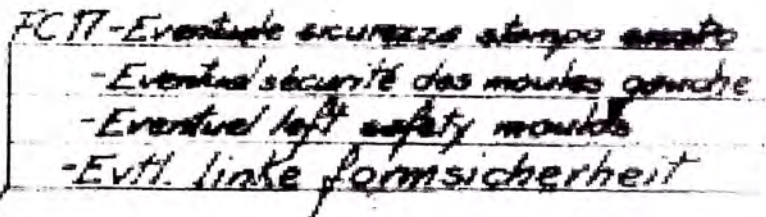 FC17-Eventuale sicurezza stampo
-Eventuel sécurité des moules gauche
-Eventuel left safety moulds
-Evtl. linke formsicherheit